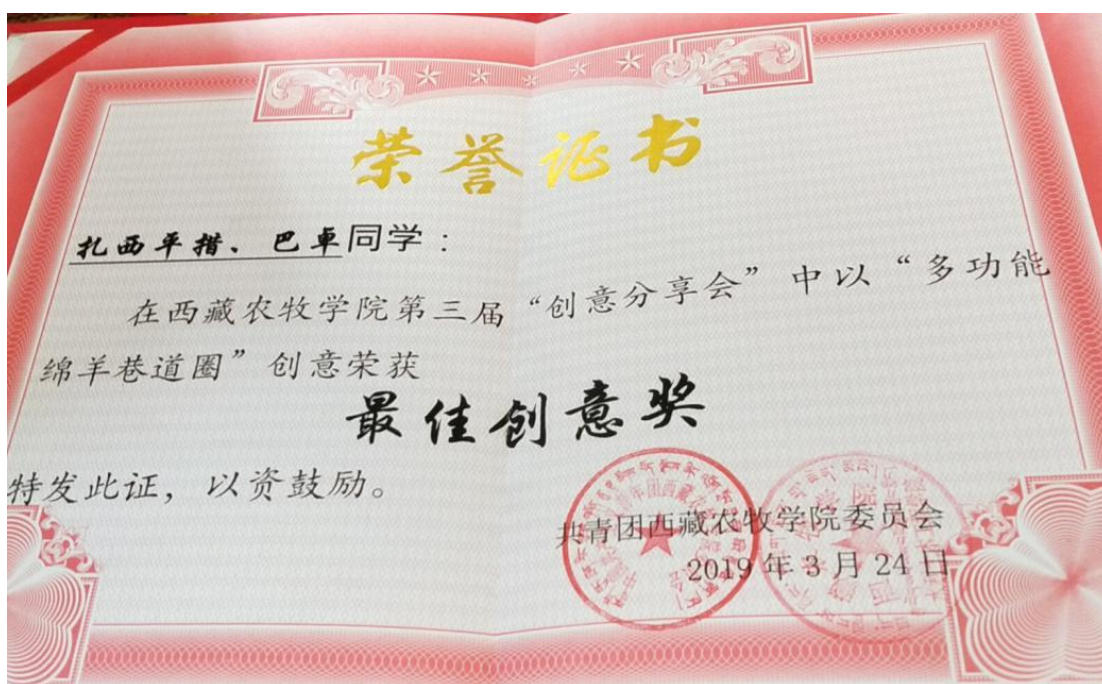 荣誉证书
扎西平措、巴卓同学:
在西藏农牧学院第三届“创意分享会”中以“多功能
绵羊巷道圈”创意荣获
最佳创意奖
特发此证，以资鼓励。
共青团西藏农牧学院委员会
2019年3月24日